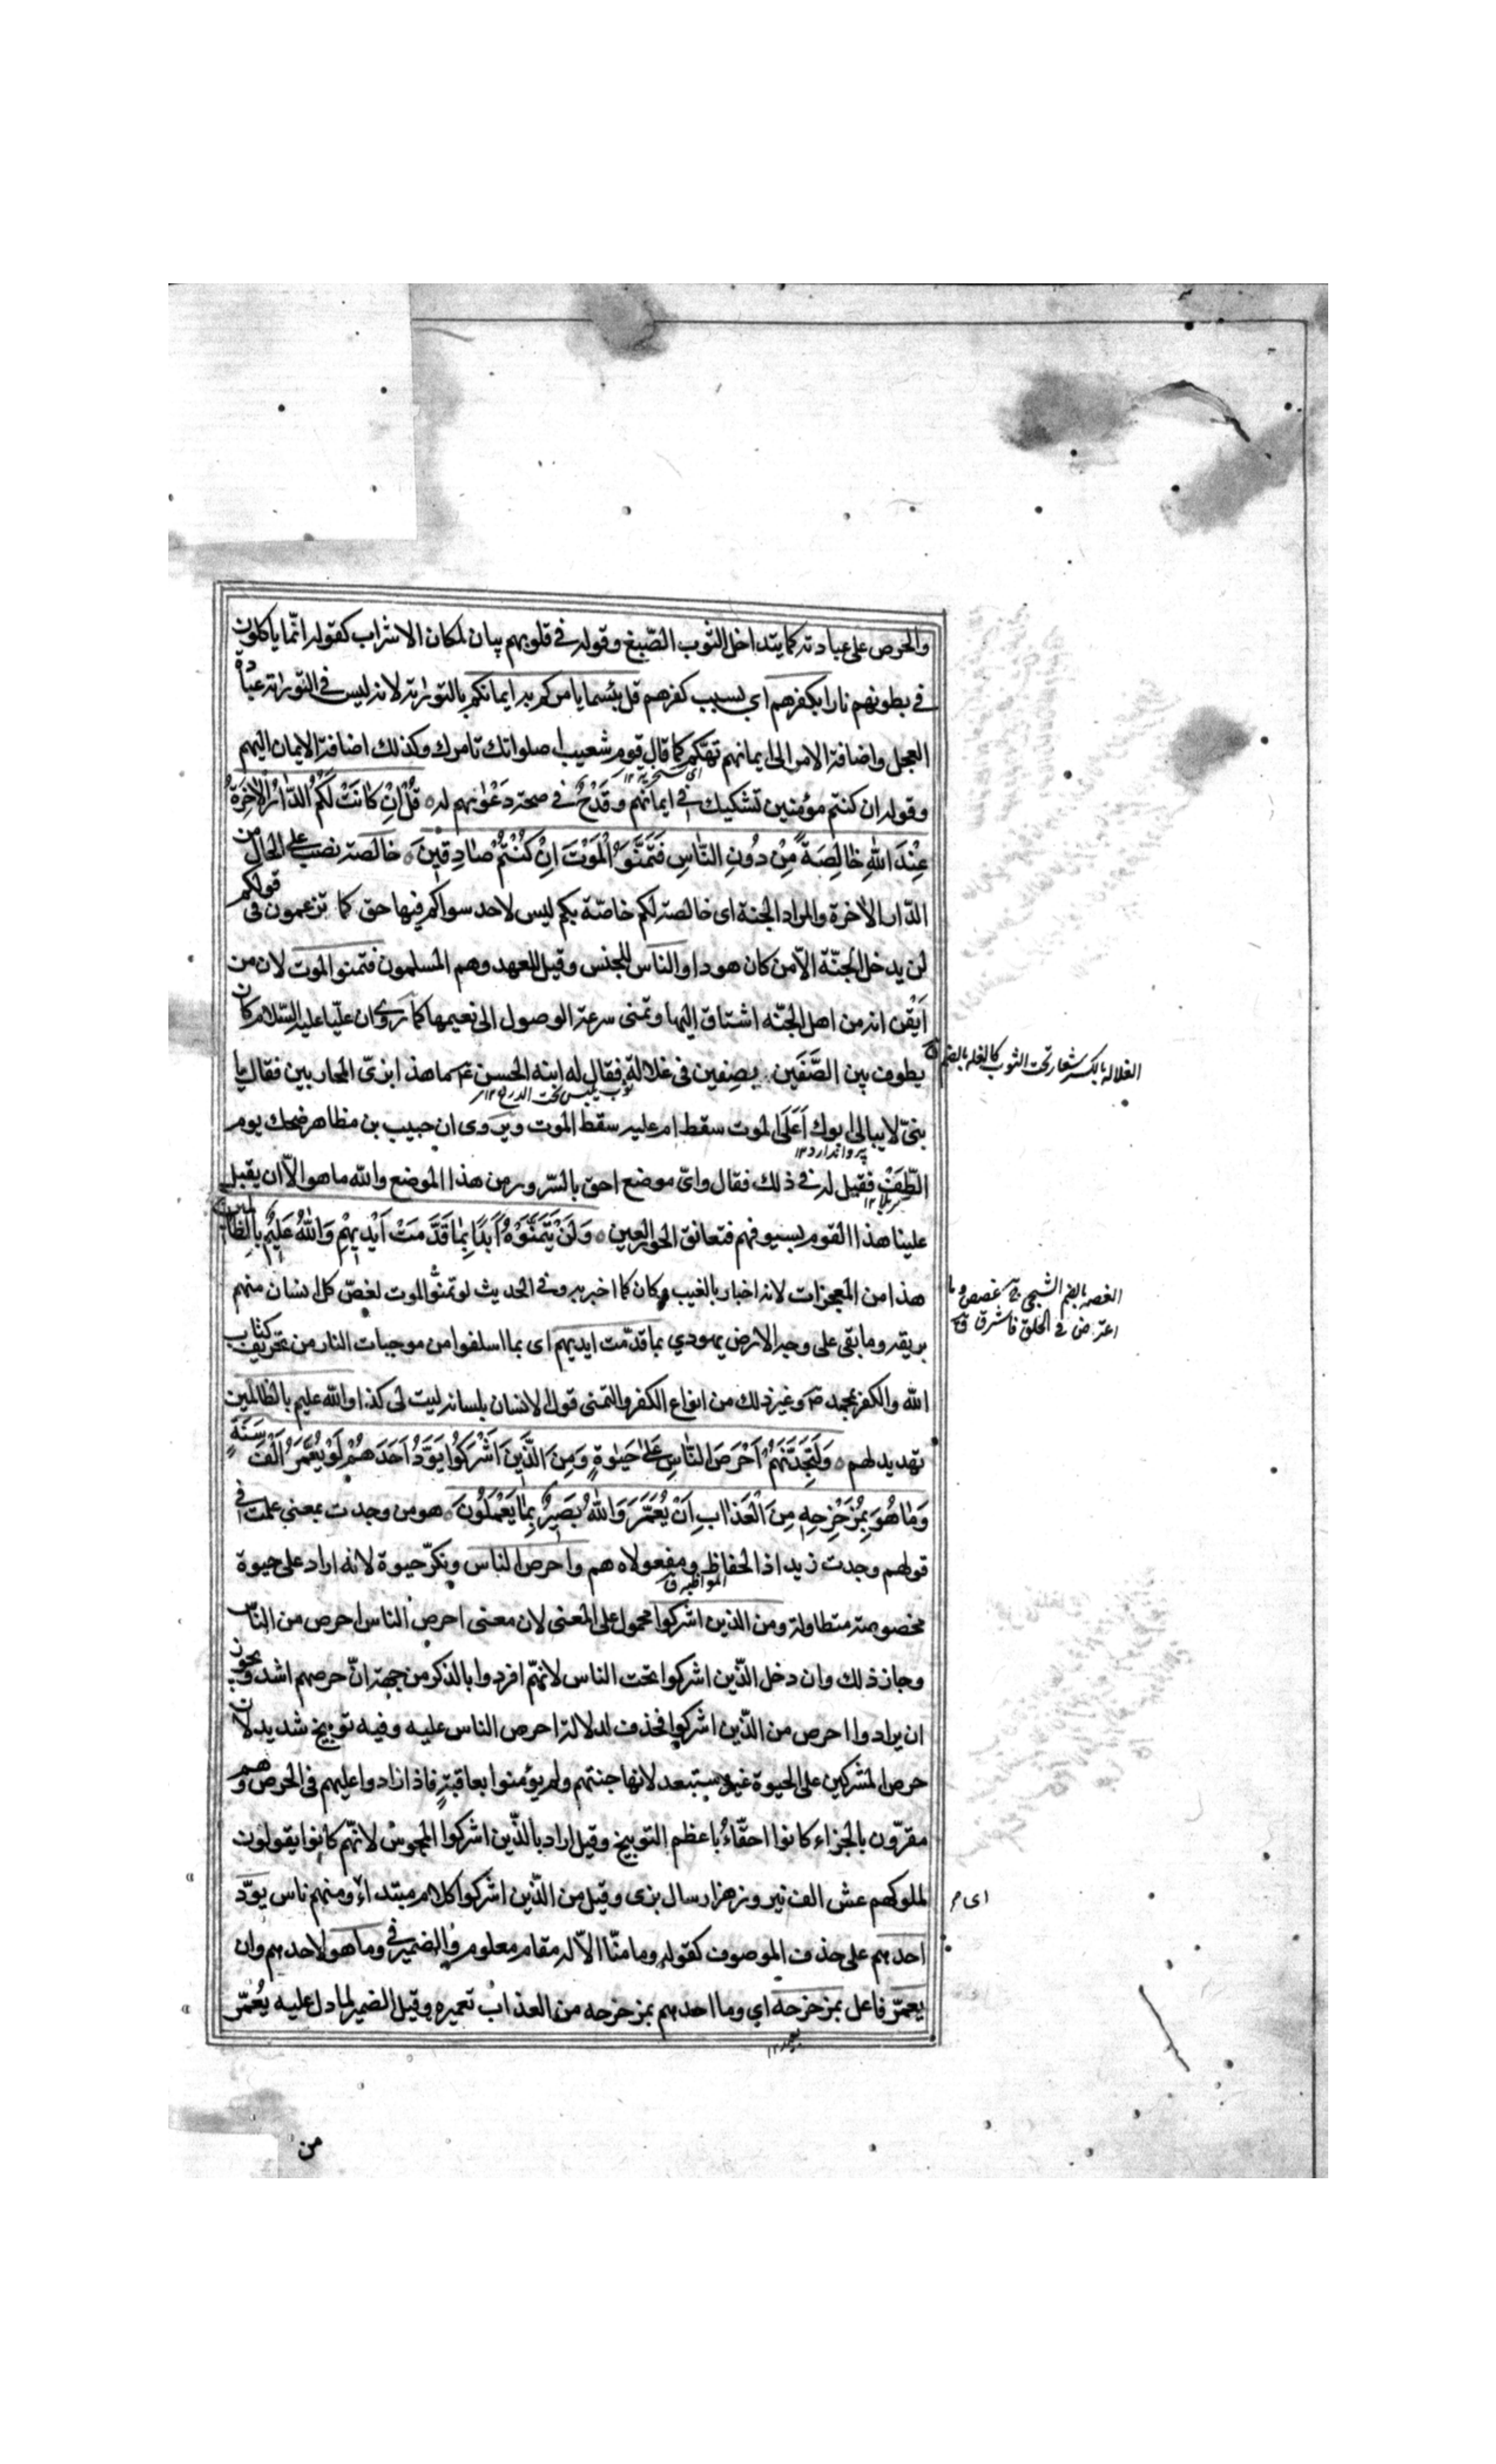 والحرص على عبادته كما يتداخل الثوب الصّبغ وقوله في قلوبهم بيان لمكان الاشراب كقوله انّما ياكلون
في بطونهم نارا بكفرهم اي بسبب كفرهم قل بئسما يامركم به ايمانكم بالتوراية لانه ليس في التوراية عبادة
العجل واضافة الامر الى ايمانهم تهكّم كما قال قوم شعيب اصلواتك تامرك وكذلك اضافة الايمان اليهم
وقوله ان كنتم مؤمنين تشكيك في ايمانهم وقَدْحٌ في صحة دَعْوٰيهم له قُلْ اِنْ كَانَتْ لَكُمُ الدّٰارُ الْاٰخِرَةُ
عِنْدَ اللّٰهِ خٰالِصَةً مِنْ دُونِ النّٰاسِ فَتَمَنَّوُ الْمَوْتَ اِنْ كُنْتُمْ صٰادِقِينَ خالصة نصب على الحال من
الدّار الآخرة والمراد الجنة اى خالصة لكم خاصّة بكم ليس لاحد سواكم فيها حق كما تزعمون فى قولكم
لن يدخل الجنّة الّا من كان هودا والناس للجنس وقيل للعهد وهم المسلمون فتمنوا الموت لان من
اَيْقن انه من اهل الجنّه اشتاق اليها وتمنى سرعة الوصول الى نعيمها كما رُوي ان عليّا عليه السّلام كان
يطوف بين الصَّفَين بصِفين فى غلالةٍ فقال له ابنه الحسن ع ما هذا بزىّ المحاربين فقال يا
بنىّ لا يبالى ابوك اَعَلَى الموت سقط ام عليه سقط الموت ويروى ان حبيب بن مظاهر ضحك يوم
الطّفّ فقيل له في ذلك فقال واىّ موضع احق بالسّرور من هذا الموضع والله ما هو الّا ان يقبل
علينا هذا القوم بسيوفهم فتعانق الحور العين وَلَنْ يَتَمَنَّوْهُ اَبَدًا بِمٰا قَدَّمَتْ اَيْدِيهِمْ وَاللّٰهُ عَلِيمٌ بِالظّٰالِمِينَ
هذا من المعجزات لانه اخبار بالغيب وكان كما اخبر به وفى الحديث لو تمنّوا الموت لغصّ كل انسان منهم
بريقه وما بقى على وجه الارض يهودي بما قدّمت ايديهم اى بما اسلفوا من موجبات النار من تحريف كتاب
الله والكفر بمحمد ص وغير ذلك من انواع الكفر والتمنى قول الانسان بلسانه ليت لى كذا والله عليم بالظالمين
تهديد لهم وَلَتَجِدَنَّهُمْ اَحْرَصَ النّٰاسِ عَلىٰ حَيٰوةٍ وَمِنَ الَّذِينَ اَشْرَكُوا يَوَدُّ اَحَدُهُمْ لَوْ يُعَمَّرُ اَلْفَ سَنَةٍ
وَمٰا هُوَ بِمُزَحْزِحِهِ مِنَ الْعَذٰابِ اَنْ يُعَمَّرَ وَاللّٰهُ بَصِيرٌ بِمٰا يَعْمَلُونَ هو من وجدت بمعنى علمت في
قولهم وجدت زيدا ذا الحفاظ ومفعولاه هم واحرص الناس ونكّر حيوة لانه اراد على حيوة
مخصوصة متطاولة ومن الذين اشركوا محمول على المعنى لان معنى احرص الناس احرص من الناس
وجاز ذلك وان دخل الّذين اشركوا تحت الناس لانهّم افردوا بالذكر من جهة انّ حرصهم اشد ويجوز
ان يراد واحرص من الّذين اشركوا فحذف لدلالة احرص الناس عليه وفيه توبيخ شديد لان
حرص المشركين على الحيوة غير مستبعد لانها جنتهم ولم يؤمنوا بعاقبةٍ فاذا زادوا عليهم فى الحرص وهم
مقرّون بالجزاء كانوا احقّاءُ باعظم التوبيخ وقيل اراد بالّذين اشركوا المجوس لانّهم كانوا يقولون
لملوكهم عش الف نيروز هزار سال بزى وقيل من الّذين اشركوا كلام مبتداء ومنهم ناس يودّ
احدهم على حذف الموصوف كقوله وما منّا الّا له مقام معلوم والضمير في وما هو لاحدهم وان
يعمرّ فاعل بمزحزحه اي وما احدهم بمزحزحه من العذاب تعميره وقيل الضمير لما دل عليه يُعُمّر
من
اى سخرية ١٢
ثوب يلبس تحت الدرع ١٢
پروا ندارد ١٢
كربلا ١٢
المواظبة ق
الغلالة بالكسر شعار تحت الثوب كالغلة بالضم ق
الغصة بالضم الشجى ج غصص وما
اعترض في الحلق فاشرق ق
اى م